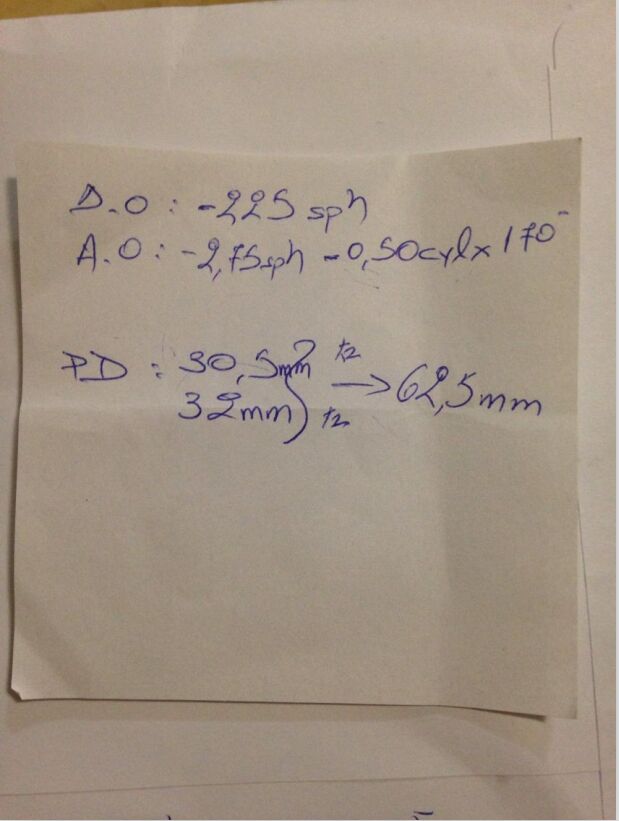 D.O : -225 sph
A.O : -2,75sph -0,50cylx 170°
PD : 30,5mm
32mm → 62,5mm